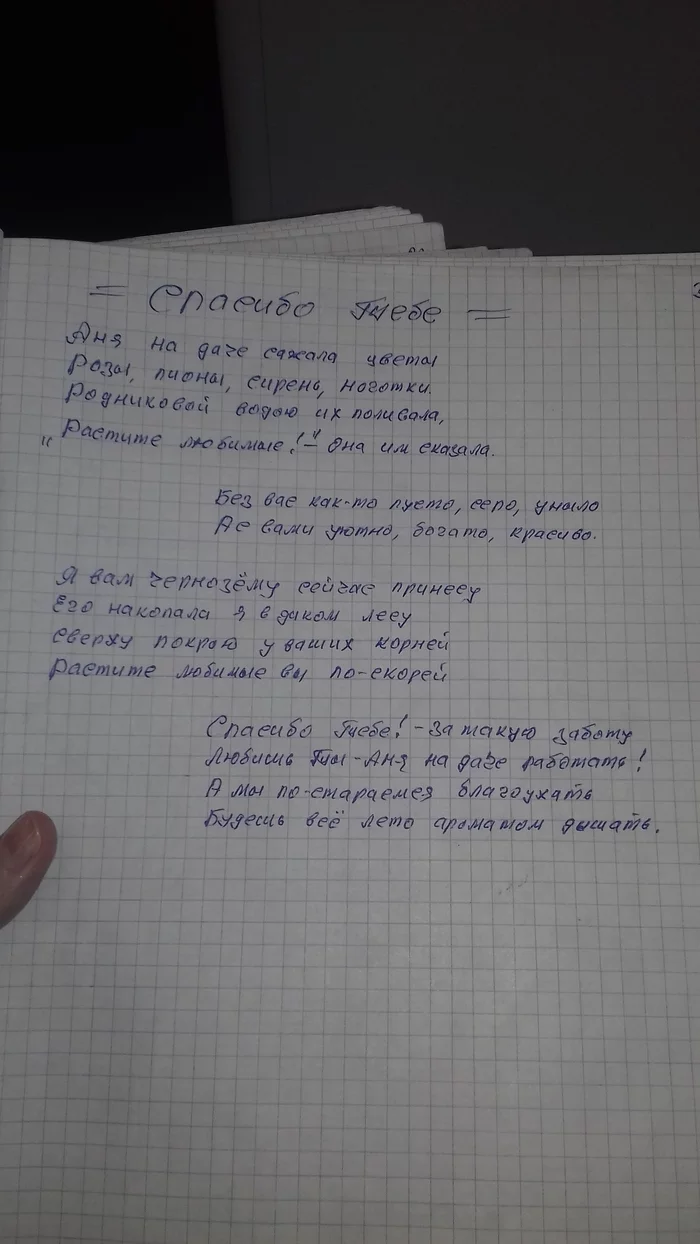 = Спасибо Тебе =
Аня на даче сажала цветы
Розы, пионы, сирень, ноготки.
Родниковой водою их поливала,
"Растите любимые!" - Она им сказала.
Без вас как-то пусто, серо, уныло
А с вами уютно, богато, красиво.
Я вам чернозёму сейчас принесу
Его накопала я в диком лесу
Сверху покрою у ваших корней
Растите любимые вы по-скорей
Спасибо Тебе! - За такую заботу
Любишь Ты - Аня на даче работать!
А мы по-стараемся благоухать
Будешь всё лето ароматом дышать.